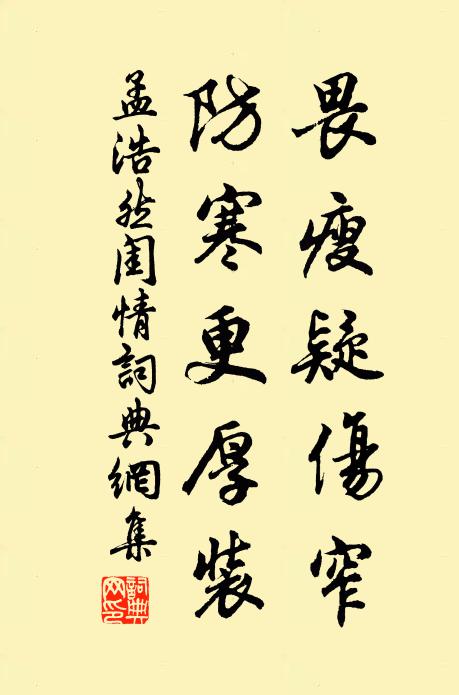 畏瘦疑傷窄
防寒更厚裝
孟浩然閨情詞典網集
詞典网印